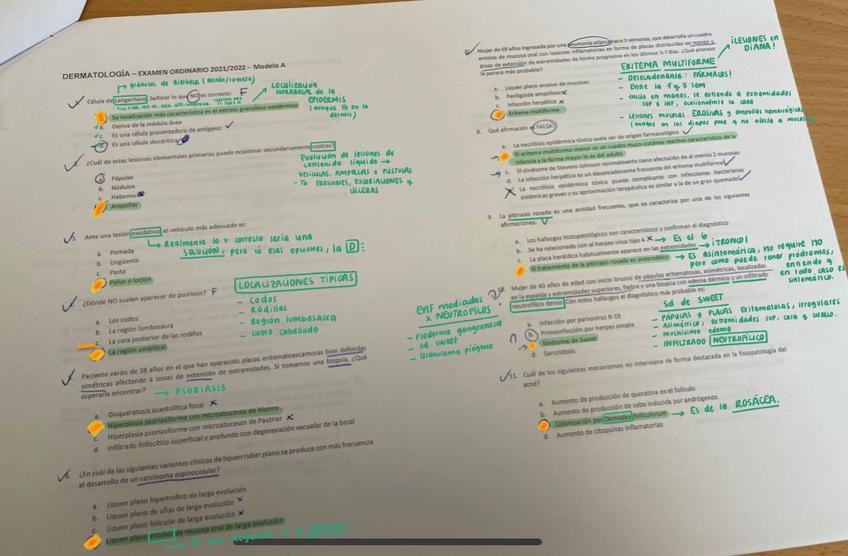 DERMATOLOGÍA – EXAMEN ORDINARIO 2021/2022 - Modelo A
→ gránulos de Birbeck
Célula de Langerhans. Señalar lo que NO es correcto: F
a. Su localización más característica es el estrato granuloso epidérmico
b. Deriva de la médula ósea
c. Es una célula presentadora de antígeno
d. Es una célula dendrítica
→ LOCALIZACIÓN SUPRABASAL DE LA EPIDERMIS
(aunque tb en la dermis)
2. ¿Cuál de estas lesiones elementales primarias puede ocasionar secundariamente costras?
a. Pápulas
b. Nódulos
c. Habones
d. Ampollas
Evolución de lesiones de
contenido líquido →
VESÍCULAS, AMPOLLAS o PÚSTULAS
- Tb EROSIONES, EXCORIACIONES y
ÚLCERAS
3. Ante una lesión exudativa el vehículo más adecuado es:
↳ Realmente lo + correcto sería una
SOLUCIÓN, pero
esas opciones, la D
a. Pomada
b. Ungüento
c. Pasta
d. Polvo o loción
4. ¿DÓNDE NO suelen aparecer de psoriasis? F
a. Los codos
b. La región lumbosacra
c. La cara posterior de las rodillas
d. La región umbilical
LOCALIZACIONES TÍPICAS
- Codos
- Rodillas
- Región lumbosacra
- Cuero cabelludo
5. Paciente varón de 38 años en el que han aparecido placas eritematoescamosas bien definidas
simétricas afectando a zonas de extensión de extremidades. Si tomamos una biopsia, ¿Qué
esperaría encontrar? → PSORIASIS
a. Disqueratosis acantolítica focal x
b. Hiperplasia psoriasiforme con microabscesos de Munro
c. Hiperplasia psoriasiforme con microabscesos de Pautrier x
d. Infiltrado linfocítico superficial y profundo con degeneración vacuolar de la basal
6. ¿En cuál de las siguientes variantes clínicas de liquen ruber plano se produce con más frecuencia
el desarrollo de un carcinoma espinocelular?
a. Liquen plano hipertrófico de larga evolución
b. Liquen plano de uñas de larga evolución x
c. Liquen plano folicular de larga evolución x
d. Liquen plano erosivo de mucosa oral de larga evolución
7. Mujer de 69 años ingresada por una neumonía atípica hace 3 semanas, que desarrolla un cuadro
erosivo de mucosa oral con lesiones inflamatorias en forma de placas distribuidas en manos y
áreas de extensión de extremidades de forma progresiva en los últimos 5-7 días. ¿Qué proceso
le parece más probable?
¡LESIONES en
DIANA!
a. Liquen plano erosivo de mucosas
b. Penfigoide ampolloso x
c. Infección herpética x
d. Eritema multiforme
ERITEMA MULTIFORME
- Desencadenante: FÁRMACOS!
- Entre la 1 y 3 sem
- Inicia en manos, se extiende a extremidades
SUP e INF, ocasionalmente la cara
- Lesiones mucosas EROSIVAS y ampollas
8. Qué afirmación es FALSA:
a. La necrólisis epidérmica tóxica suele ser de origen farmacológico
b. El eritema multiforme menor es un cuadro muco-cutáneo reactivo característico de la
infancia y la forma mayor lo es del adulto
c. El síndrome de Stevens-Johnson normalmente tiene afectación de al menos 1 mucosas
d. La infección herpética es un desencadenante frecuente del eritema multiforme
x La necrólisis epidérmica tóxica puede complicarse con infecciones bacterianas
sistémicas graves y su aproximación terapéutica es similar a la de un gran quemado
9. La pitiriasis rosada es una entidad frecuente, que se caracteriza por una de las siguientes
afirmaciones: V
a. Los hallazgos histopatológicos son característicos y confirman el diagnóstico
b. Se ha relacionado con el herpes virus tipo 4 x → Es el 6
c. La placa heráldica habitualmente aparece en las extremidades → ¡TRONCO!
d. El tratamiento de la pitiriasis rosada es sintomático → Es asintomática, no requiere NO
pero como puede tener pródromos,
en todo caso es
sintomático.
10. Mujer de 40 años de edad con inicio brusco de pápulas eritematosas, asimétricas, localizadas
en la espalda y extremidades superiores, fiebre y una biopsia con edema dérmico y un infiltrado
neutrofílico denso. Con estos hallazgos el diagnóstico más probable es:
a. Infección por parvovirus B-19
b. Primoinfección por herpes simple
c. Síndrome de Sweet
d. Sarcoidosis
ENF mediadas
x NEUTRÓFILOS
- Pioderma gangrenoso
- Sd Sweet
- Granuloma piógeno
Sd de SWEET
- PÁPULAS y PLACAS ERITEMATOSAS, irregulares
- Asimétrico, extremidades sup, cara y cuello.
- Muchísimo edema
- INFILTRADO NEUTROFÍLICO
11. Cuál de los siguientes mecanismos no interviene de forma destacada en la fisiopatología del
acné?
a. Aumento de producción de queratina en el folículo
b. Aumento de producción de sebo inducida por andrógenos
c. Colonización por Demodex folliculorum → Es de la ROSÁCEA.
d. Aumento de citoquinas inflamatorias